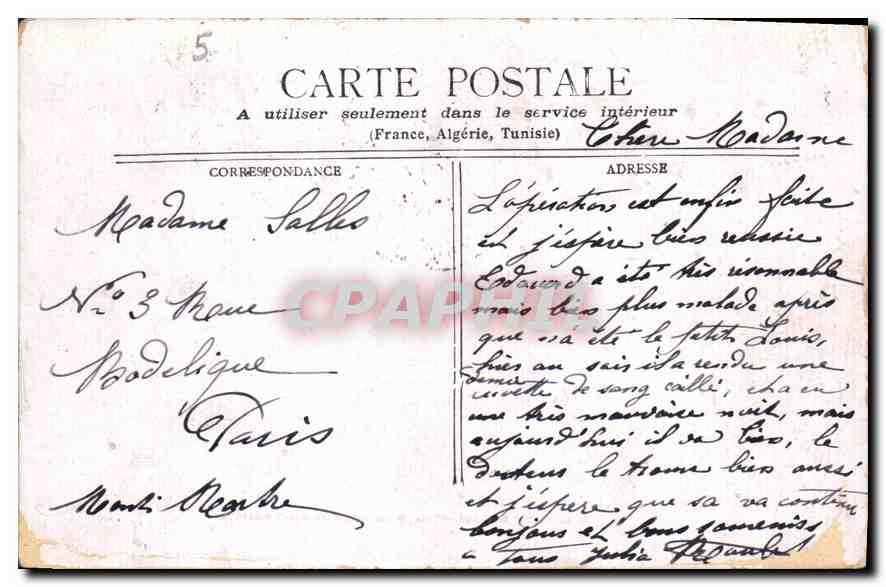 5
CARTE POSTALE
A utiliser seulement dans le service intérieur
(France, Algérie, Tunisie)
CORRESPONDANCE
Madame Salles
N° 3 Rue
Paris
ADRESSE
Chere Madame
L'opération est enfin faite
et j'espère bien reussie
Edouard a été très résonnable
mais bien plus malade après
que n'a été le petit Louis,
hier au soir il a rendu une
demie
cuvette de sang caillé, et a eu
une très mauvaise nuit, mais
aujourd'hui il va bien, le
docteur le trouve bien aussi
et j'espere que sa va continu
bonjour et bons souvenirs
a tous Julia
CPAPHIL